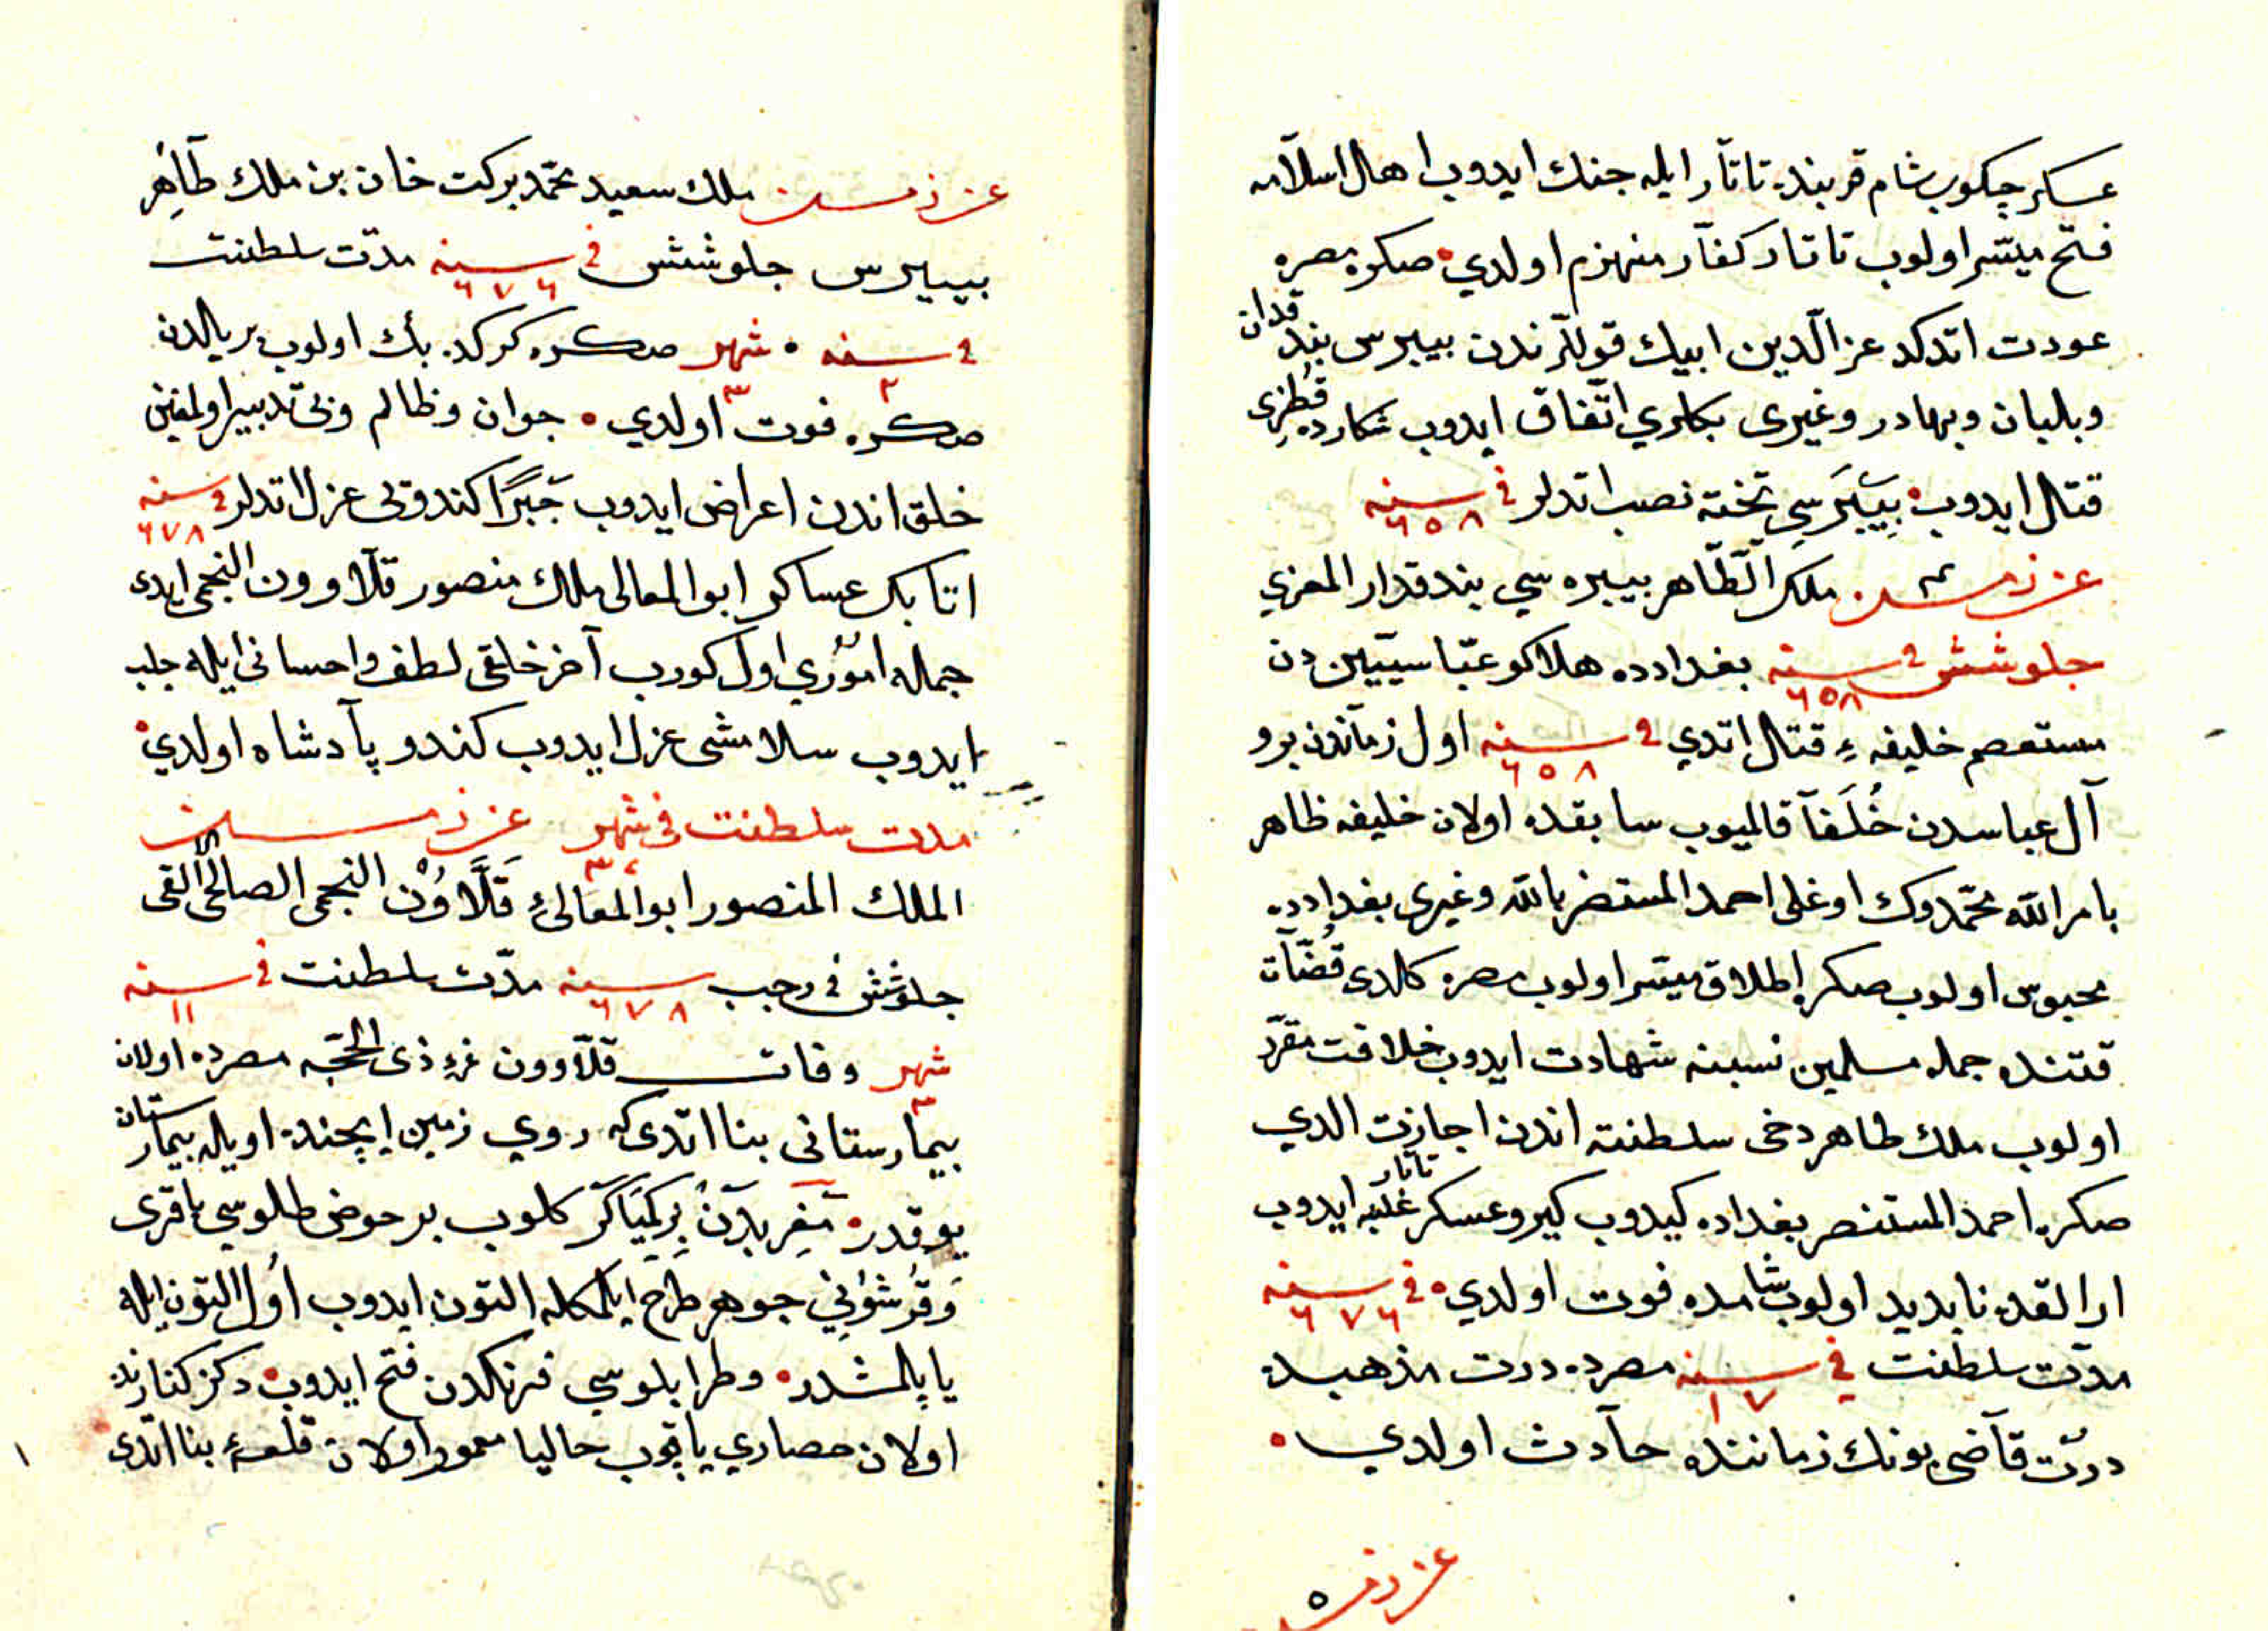 عسكر چكوب شام قربنده تاتار ايله جنك ايدوب اهل اسلامه
فتح ميسر اولوب تاتار كفار منهزم اولدي صكره مصره
عودت اتدكده عز الدين ايبك قوللرندن بيبرس بندقدان
وبلبان وبهادر وغيرى بكلري اتفاق ايدوب شكارده قطزى
قتال ايدوب بيبرسي تخته نصب اتدلر في سنه ٦٥٨
ملك الظاهر بيبره سي بندقدار المعزي
جلوشش في سنه ٦٥٨ بغدادده هلاكو عباسيين دن
مستعصم خليفهء قتال اتدي في سنه ٦٥٨ اول زماندن برو
آل عباسدن خلفا قالميوب سابقده اولان خليفه ظاهر
بامر الله محمدوك اوغلى احمد المستنصر بالله وغيرى بغدادده
محبوس اولوب صكره اطلاق ميسر اولوب مصره كلدى قضات
قتنده جمله مسلمين نسبنه شهادت ايدوب خلافت مقرر
اولوب ملك طاهر دخى سلطنته اندن اجازت الدي
صكره احمد المستنصر بغداده كيدوب كيرو عسكر تاتار غلبه ايدوب
ارالقده نابديد اولوب شامده فوت اولدي في سنه ٦٧٦
مدت سلطنت في سنه ١٧ مصرده درت مذهبده
درت قاضى بونك زماننده حادث اولدي
٥
ملك سعيد محمد بركت خان بن ملك طاهر
بيبرس جلوشش في سنه ٦٧٦ مدت سلطنت
في سنه ٢ شهر ٣ صكره كركده بك اولوب بر يالدن
صكره فوت اولدي جوان وظالم وبى تدبير اولمغين
خلق اندن اعراض ايدوب جبرا كندوبى عزل اتدلر في سنه ٦٧٨
اتابك عساكر ابو المعالى ملك منصور قلاوون النجمى ايدى
جمله اموري اول كورب آخر خلقى لطف واحسانى ايله جلب
ايدوب سلامشى عزل ايدوب كندو پادشاه اولدي
مدت سلطنت في شهر ٣
الملك المنصور ابو المعالى قلاون النجمى الصالحى الالفى
جلوشش في رجب سنه ٦٧٨ مدت سلطنت في سنه ١١
شهر ٣ وفات قلاوون غرهء ذى الحجه مصرده اولان
بيمارستانى بنا اتدى كه روي زمين ايچنده اويله بيمارستان
يوقدر مغربدن بر كمياكر كلوب بر حوض طلوسي باقرى
وقرشونى جوهر طرح ايلمكله التون ايدوب اول التون ايله
يا پلمشدر وطرابلوسي فرنكدن فتح ايدوب دكز كنارنده
اولان حصاري يا قوب حاليا معمور اولان قلعهء بنا اتدى